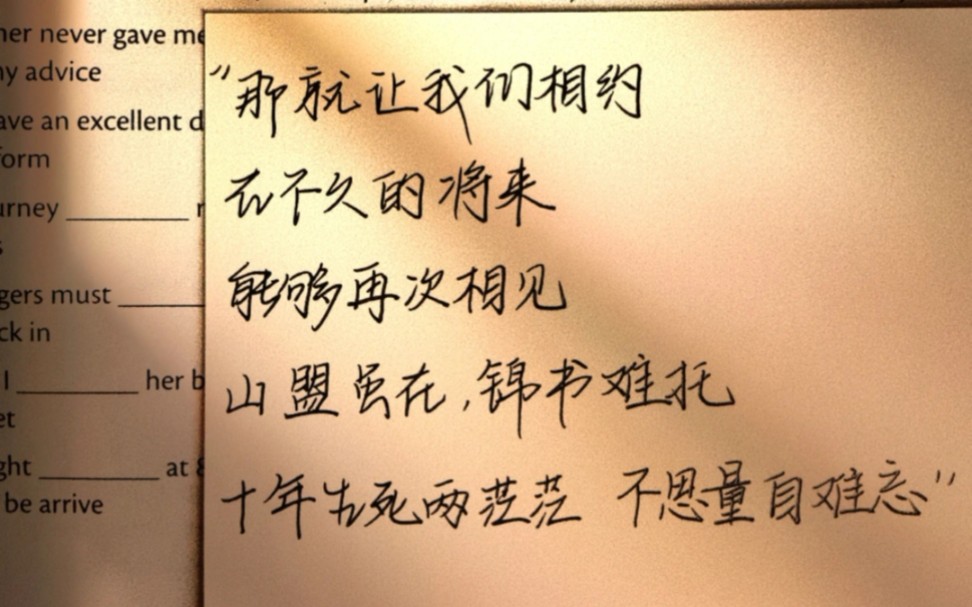 her never gave me
ny advice
ave an excellent d
form
urney ________ r
s
gers must ________
ck in
I ________ her b
et
ght ________ at 8
be arrive
“那就让我们相约
在不久的将来
能够再次相见
山盟虽在,锦书难托
十年生死两茫茫 不思量自难忘”